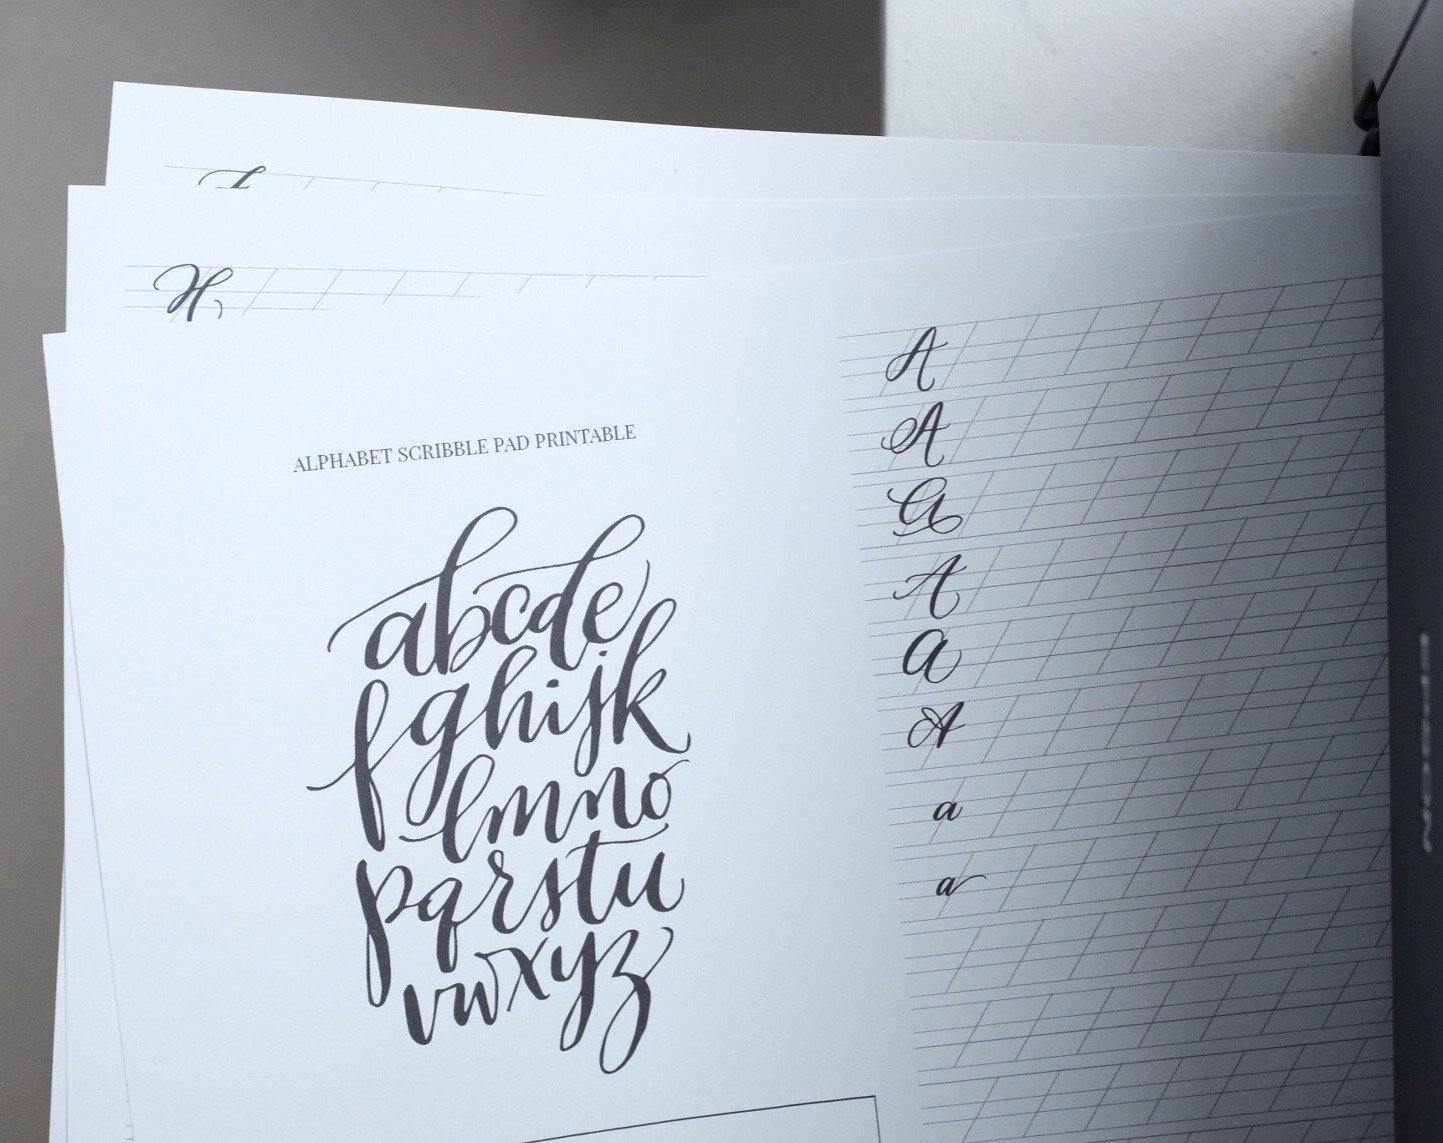 H
ALPHABET SCRIBBLE PAD PRINTABLE
abcde
fghijk
lmno
pqrstu
vwxyz
A
A
A
A
A
A
a
a